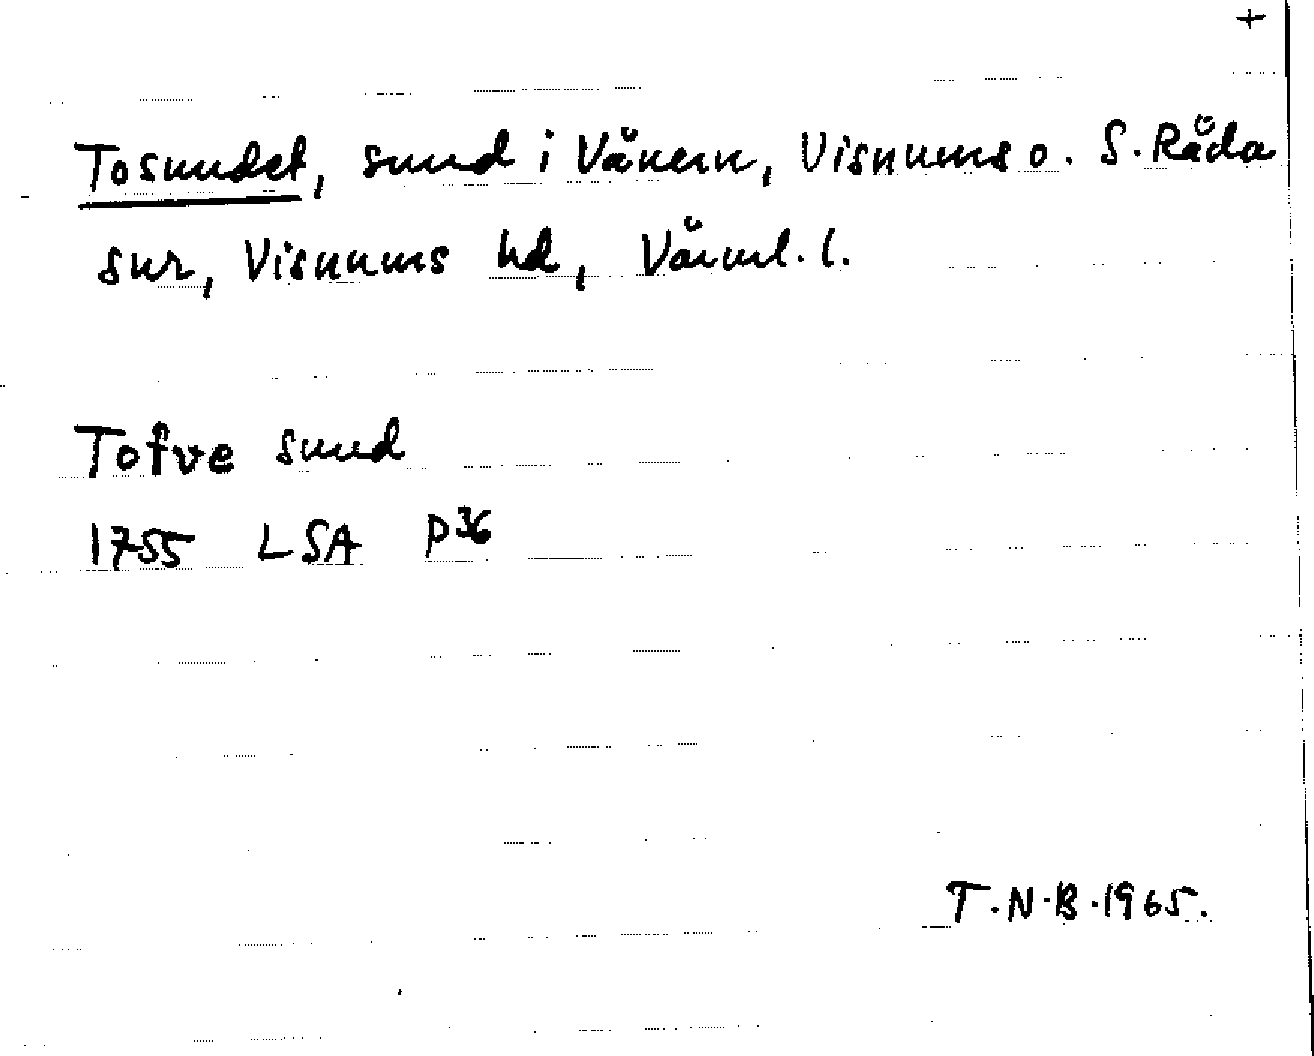 +
Tosundet, sund i Vänern, Visnums o. S. Råda
snr, Visnums hd, Värml. l.
Tofve sund
1755 LSA P36
T.N.B.1965.